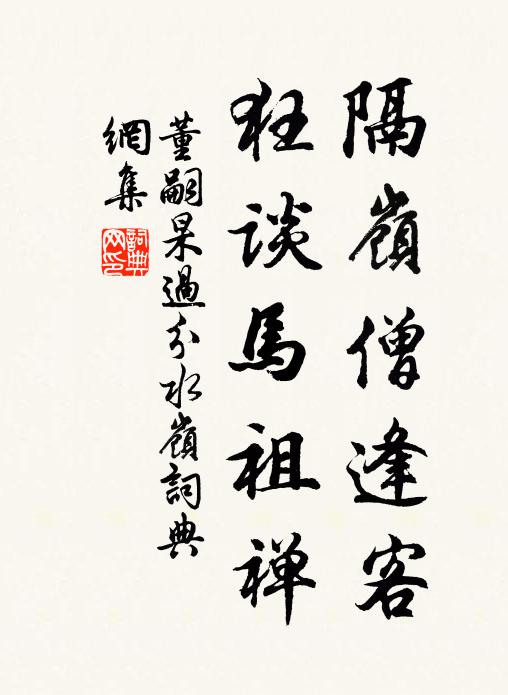 隔嶺僧逢客
狂談馬祖禅
董嗣杲過分水嶺詞典
網集
詞典網印